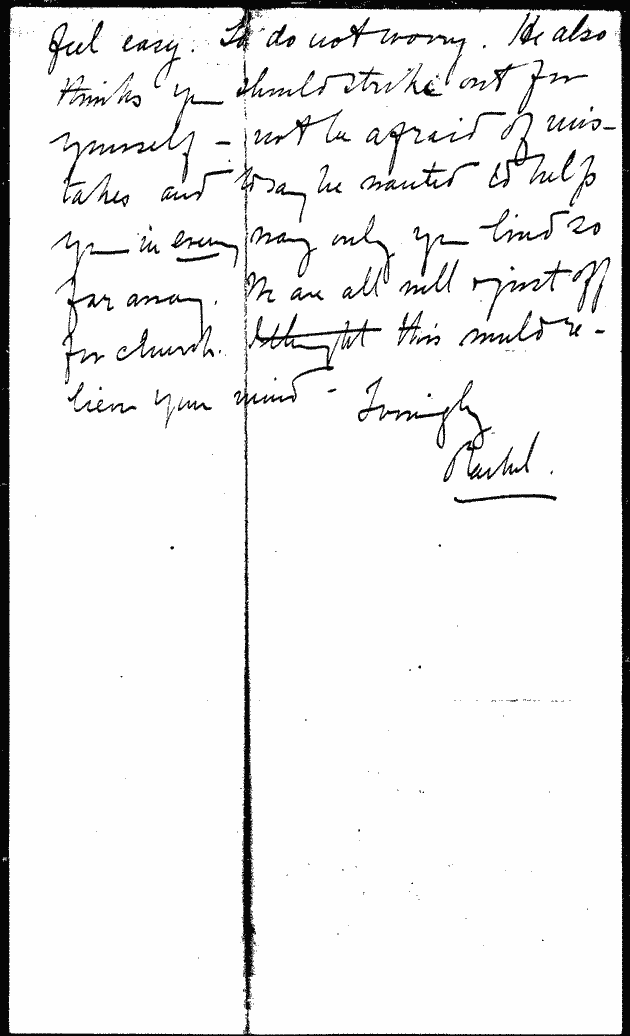 feel easy. So do not worry. He also
thinks you should strike out for
yourself - not be afraid of mis-
takes and to say he wanted to help
you in every way only you lived so
far away. We are all well & just off
for church. I thought this would re-
lieve your mind - Lovingly
Rachel.